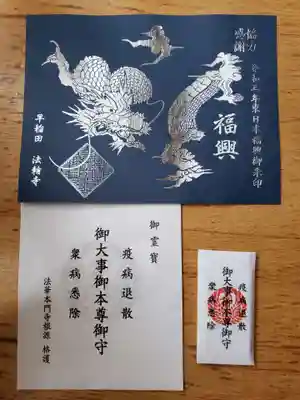 協力
感謝
令和元年東日本福興御朱印
福興
早稲田 法輪寺
御霊寶
疫病退散
御大事御本尊御守
衆病悉除
法華本門寺根源 格護
疫病退散
御大事御本尊御守
衆病悉除